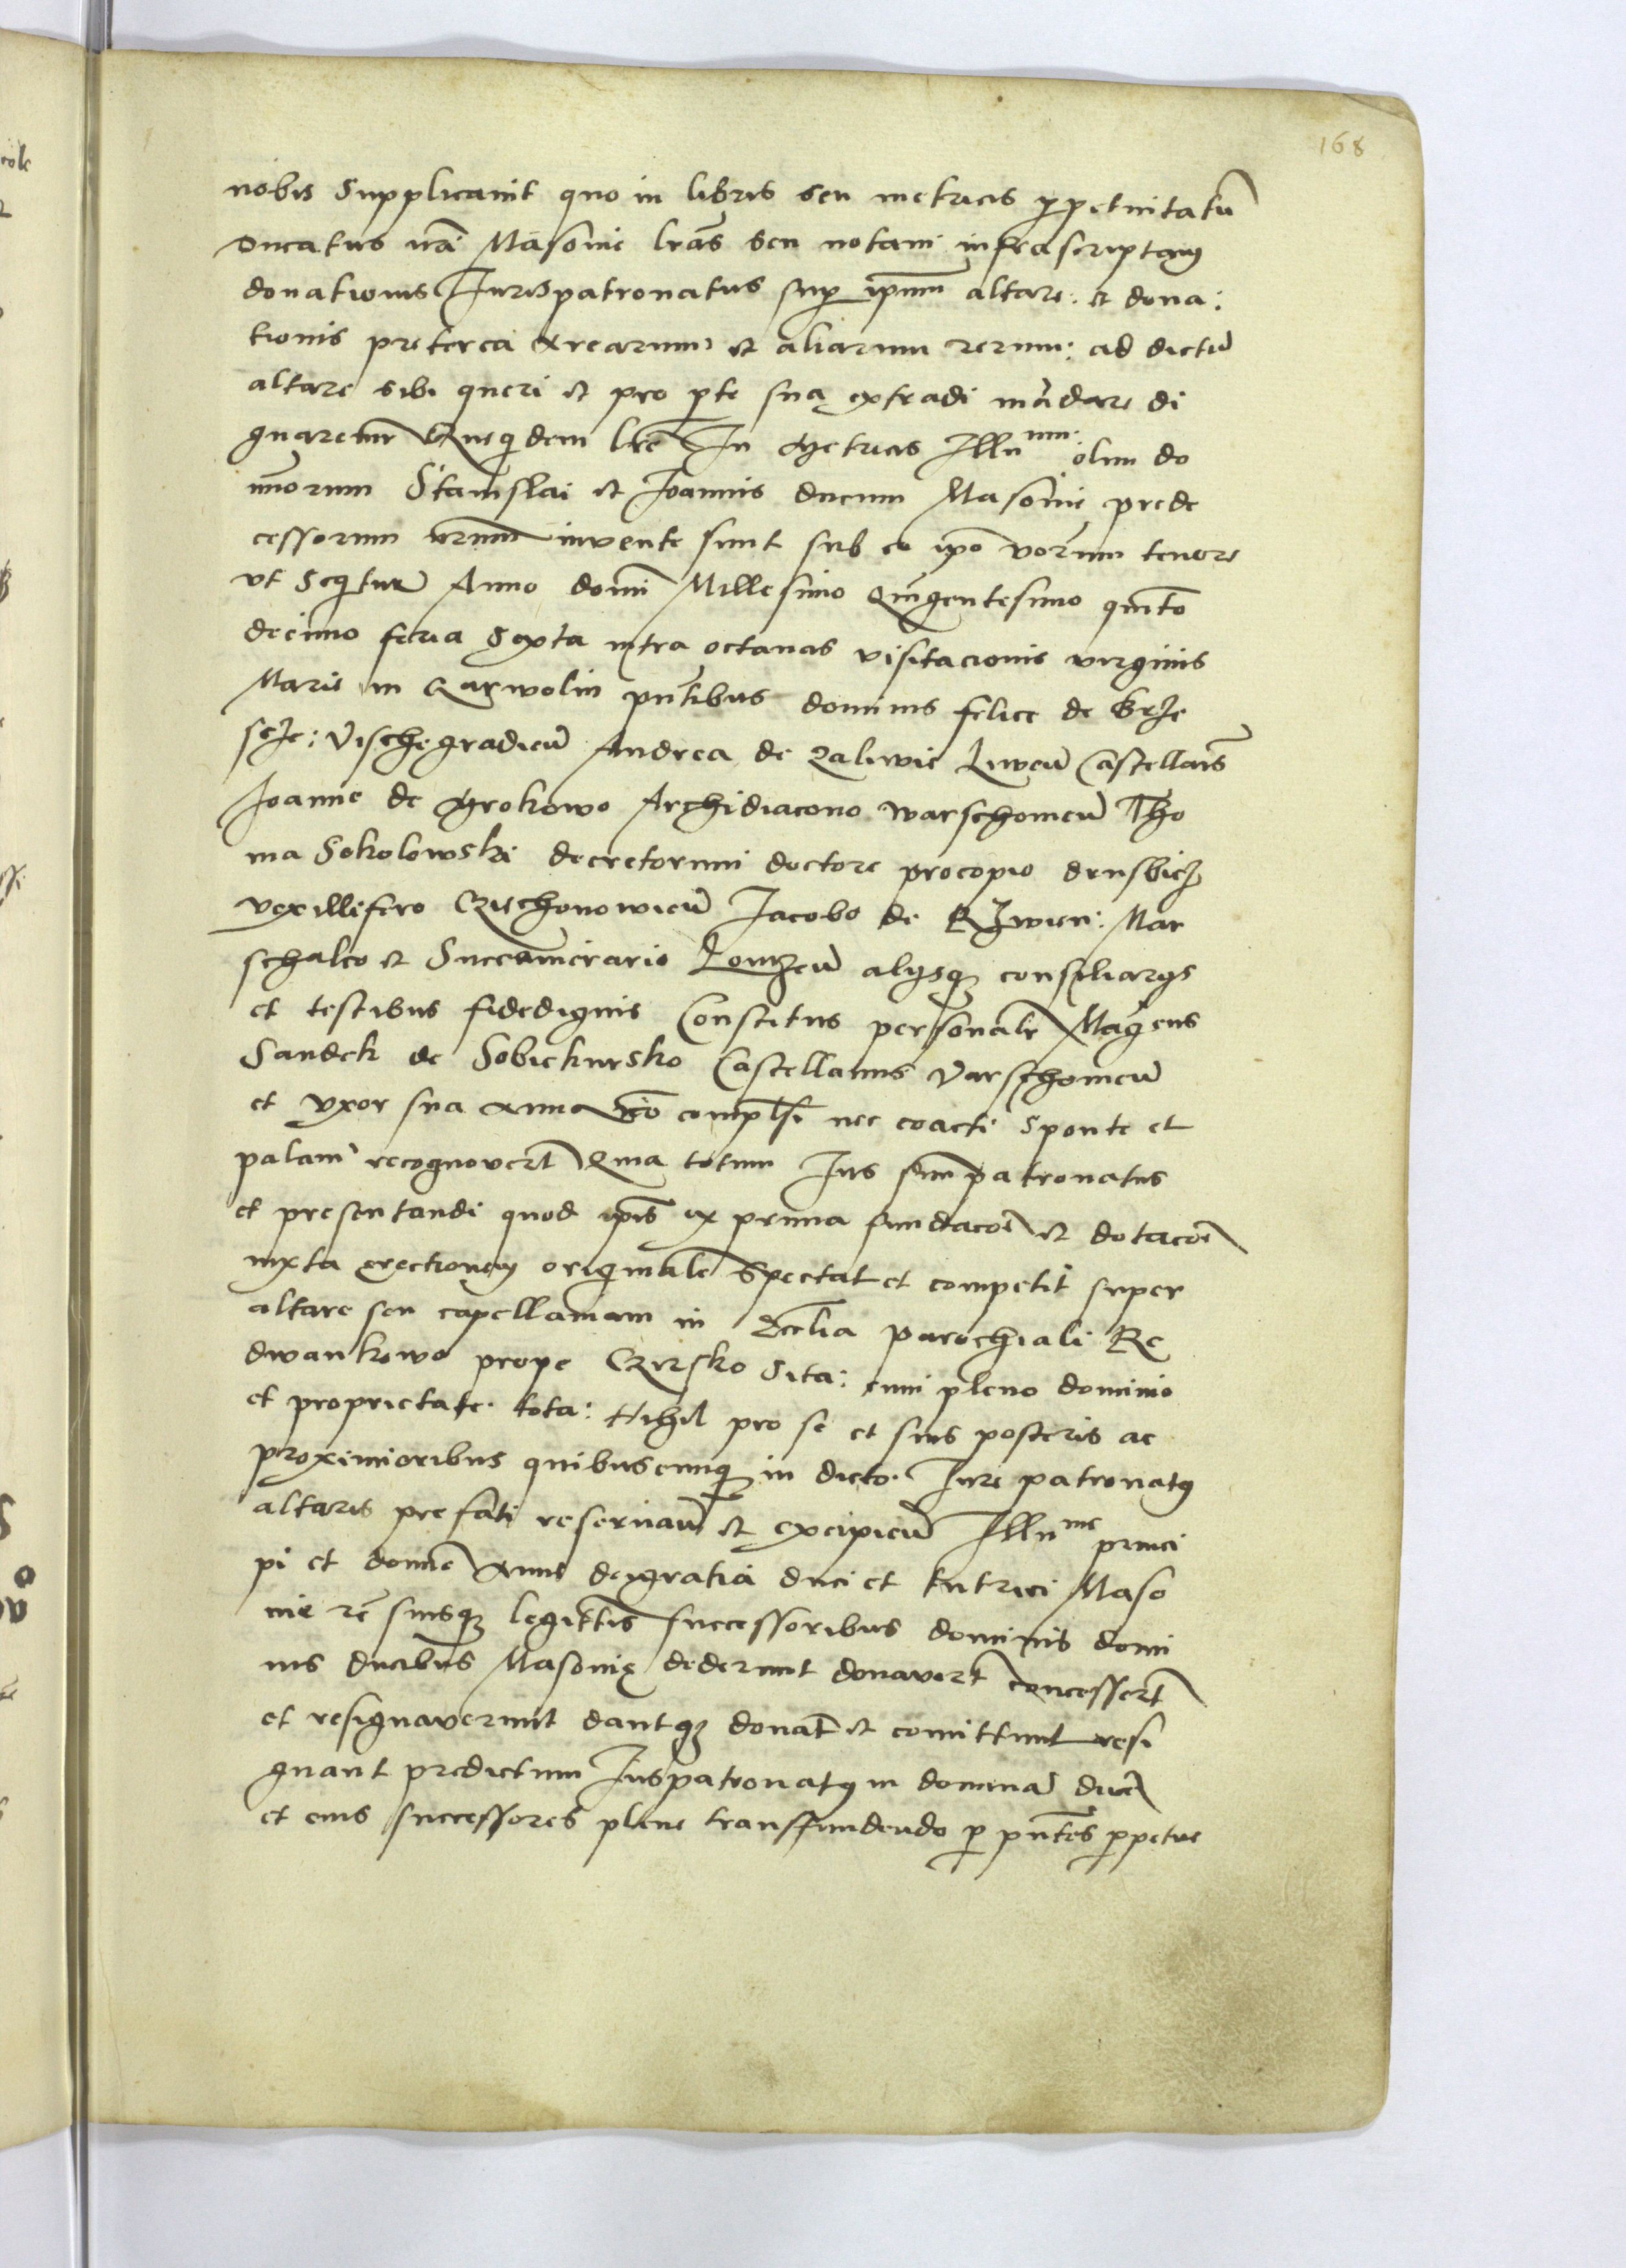 168
nobis supplicavit quo in libris seu metricis ppetuitatū
ducatus nrī Masovie lrās seu notam infrascriptam
donationis Iurispatronatus sup ipsum altare: et dona:
tionis preterea Arearum et aliarum rerum: ad dictū
altare sibi queri et pro pte sua extradi mādare di
gnaremr Quequidem lre In Metricis Illu mm: olim do
minorum Stanislai et Joannis ducum Masovie prede
cessorum nrorum invente sunt sub eo ipso verborum tenore
ut Sequitur Anno domi Millesimo Quingentesimo quīto
decimo feria Sexta intra octavas visitacionis virginis
Marie in Garwolin pntibus dominis felice de Brze
scze: Vischegradieū Andrea de Zaliwie Liweū Castellanis
Joanne de Mrokowo Archidiacono Warschovieū Tho
ma Sokolowski decretorum doctore procopio drusbicz
vexillifero Cziechonowieū Jacobo de Rzwien: Mar
schalco et Succamerario Lomzeū alysqz consiliarys
et testibus fidedignis Constitus personalr Magcus
Sandek de Sobiekursko Castellanus Varschovieū
et uxor sua Anna nō compulsi nec coacti sponte et
palam recognovert Quia totum Jus suum patronatus
et presentandi quod ipsis ex prima fundacoē et dotacoē
iuxta erectionem originale Spectat et competit super
altare seu capellaniam in Ecclia parochiali Re
dwankowo prope Czirsko Sita: cum pleno dominio
et proprietate tota: Nihil pro se et suis posteris ac
proximioribus quibuscunqz in dicto Jure patronatus
altaris prefati reservaū et excipieū Illu me princi
pi et domne Anne deigratia duci et tutrici Maso
vie rē suisqz legittis successoribus dominis domi
nis ducibus Masovie dederunt donavert concessert
et resignaverunt dantqz donat et comittunt resi
gnant predictum Juspatronatus in dominā ducē
et eius successores plene transfundendo p pntes ppetue